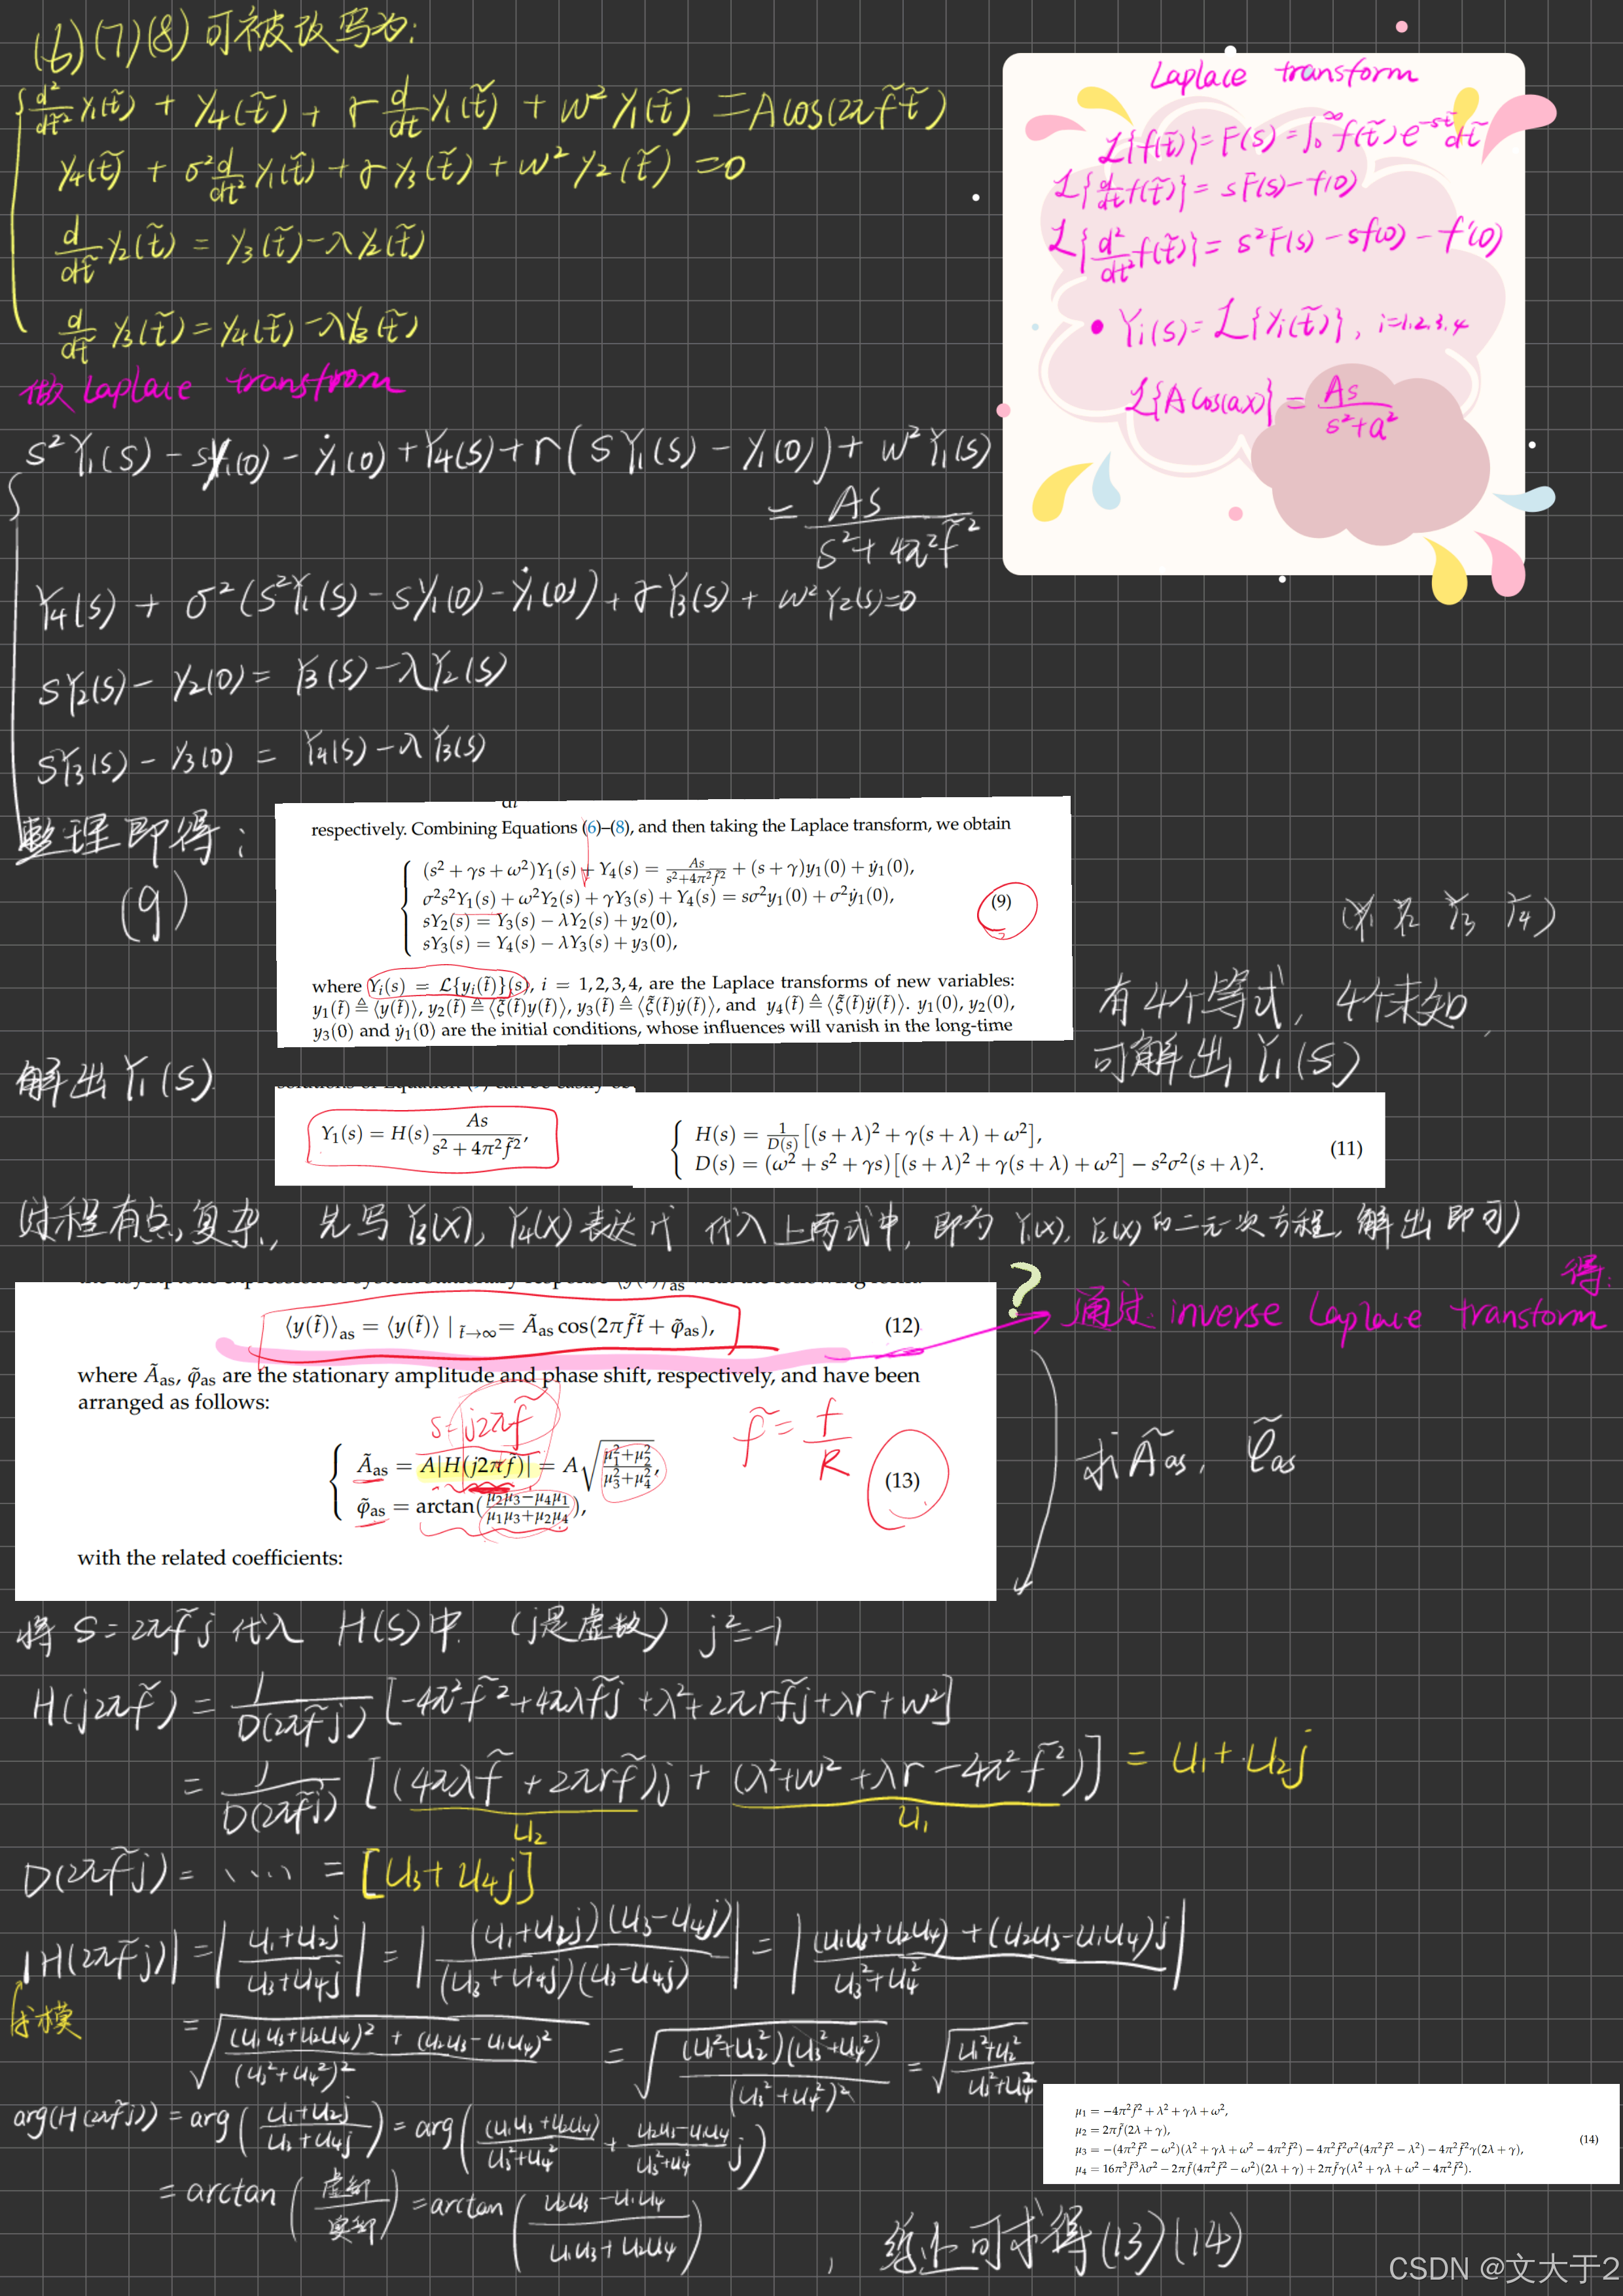 (6)(7)(8)可被改写为:
d²/dt̃² y₁(t̃) + y₄(t̃) + γ d/dt̃ y₁(t̃) + w² y₁(t̃) = A cos(2πf̃t̃)
y₄(t̃) + σ² d/dt² y₁(t̃) + γ y₃(t̃) + w² y₂(t̃) = 0
d/dt̃ y₂(t̃) = y₃(t̃) - λ y₂(t̃)
d/dt̃ y₃(t̃) = y₄(t̃) - λ y₃(t̃)
做 Laplace transfrom
Laplace transform
ℒ{f(t̃)} = F(s) = ∫₀^∞ f(t̃) e^{-st̃} dt̃
ℒ{d/dt f(t̃)} = sF(s) - f(0)
ℒ{d²/dt² f(t̃)} = s²F(s) - sf(0) - f'(0)
• Yi(s) = ℒ{yi(t̃)}, i=1,2,3,4
ℒ{A cos(ax)} = As/(s²+a²)
s²Y₁(s) - sy₁(0) - ẏ₁(0) + Y₄(s) + r(sY₁(s) - y₁(0)) + w²Y₁(s)
= As/(s² + 4π²f̃²)
Y₄(s) + σ²(s²Y₁(s) - sy₁(0) - ẏ₁(0)) + γY₃(s) + w²Y₂(s) = 0
sY₂(s) - y₂(0) = Y₃(s) - λY₂(s)
sY₃(s) - y₃(0) = Y₄(s) - λY₃(s)
整理即得:
(9)
respectively. Combining Equations (6)–(8), and then taking the Laplace transform, we obtain
(s² + γs + ω²)Y₁(s) + Y₄(s) = As/(s²+4π²f̃²) + (s + γ)y₁(0) + ẏ₁(0),
σ²s²Y₁(s) + ω²Y₂(s) + γY₃(s) + Y₄(s) = sσ²y₁(0) + σ²ẏ₁(0),
sY₂(s) = Y₃(s) − λY₂(s) + y₂(0),
sY₃(s) = Y₄(s) − λY₃(s) + y₃(0),
(9)
where Yᵢ(s) = ℒ{yᵢ(t̃)}(s), i = 1, 2, 3, 4, are the Laplace transforms of new variables:
y₁(t̃) ≜ ⟨y(t̃)⟩, y₂(t̃) ≜ ⟨ξ̃(t̃)y(t̃)⟩, y₃(t̃) ≜ ⟨ξ̃(t̃)ẏ(t̃)⟩, and y₄(t̃) ≜ ⟨ξ̃(t̃)ÿ(t̃)⟩. y₁(0), y₂(0),
y₃(0) and ẏ₁(0) are the initial conditions, whose influences will vanish in the long-time
(Y₁ Y₂ Y₃ Y₄)
有4个等式, 4个未知,
可解出 Y₁(s)
解出 Y₁(s)
Y₁(s) = H(s) As/(s² + 4π²f̃²),
H(s) = 1/D(s) [(s + λ)² + γ(s + λ) + ω²],
D(s) = (ω² + s² + γs)[(s + λ)² + γ(s + λ) + ω²] − s²σ²(s + λ)².
(11)
(过程有点复杂, 先写 Y₃(x), Y₄(x) 表达式 代入上两式中, 即为 Y₁(x), Y₂(x) 的二元一次方程, 解出即可)
⟨y(t̃)⟩as = ⟨y(t̃)⟩ |t̃→∞ = Ãas cos(2πf̃t̃ + φ̃as), (12)
? 通过 inverse Laplace transform 得:
where Ãas, φ̃as are the stationary amplitude and phase shift, respectively, and have been
arranged as follows:
s=j2πf̃
f̃ = f/R
Ãas = A|H(j2πf̃)| = A√((μ₁²+μ₂²)/(μ₃²+μ₄²)),
φ̃as = arctan((μ₂μ₃−μ₄μ₁)/(μ₁μ₃+μ₂μ₄)),
(13)
with the related coefficients:
求 Ãas, φ̃as
将 S = 2πf̃j 代入 H(s)中. (j是虚数) j²=-1
H(j2πf̃) = 1/D(2πf̃j) [-4π²f̃² + 4πλf̃j + λ² + 2πrf̃j + λr + w²]
= 1/D(2πf̃j) [(4πλf̃ + 2πrf̃)j + (λ² + w² + λr - 4π²f̃²)] = u₁ + u₂j
u₂ u₁
D(2πf̃j) = ···· = [u₃ + u₄j]
|H(2πf̃j)| = |(u₁+u₂j)/(u₃+u₄j)| = |(u₁+u₂j)(u₃-u₄j)/((u₃+u₄j)(u₃-u₄j))| = |((u₁u₃+u₂u₄) + (u₂u₃-u₁u₄)j)/(u₃²+u₄²)|
求模
= √(((u₁u₃+u₂u₄)² + (u₂u₃-u₁u₄)²)/(u₃²+u₄²)²) = √((u₁²+u₂²)(u₃²+u₄²)/(u₃²+u₄²)²) = √((u₁²+u₂²)/(u₃²+u₄²))
arg(H(2πf̃j)) = arg((u₁+u₂j)/(u₃+u₄j)) = arg((u₁u₃+u₂u₄)/(u₃²+u₄²) + (u₂u₃-u₁u₄)/(u₃²+u₄²) j)
= arctan(虚部/实部) = arctan((u₂u₃-u₁u₄)/(u₁u₃+u₂u₄))
μ₁ = −4π²f̃² + λ² + γλ + ω²,
μ₂ = 2πf̃(2λ + γ),
μ₃ = −(4π²f̃² − ω²)(λ² + γλ + ω² − 4π²f̃²) − 4π²f̃²σ²(4π²f̃² − λ²) − 4π²f̃²γ(2λ + γ),
μ₄ = 16π³f̃³λσ² − 2πf̃(4π²f̃² − ω²)(2λ + γ) + 2πf̃γ(λ² + γλ + ω² − 4π²f̃²).
(14)
, 综上可求得(13)(14)
CSDN @文大于2